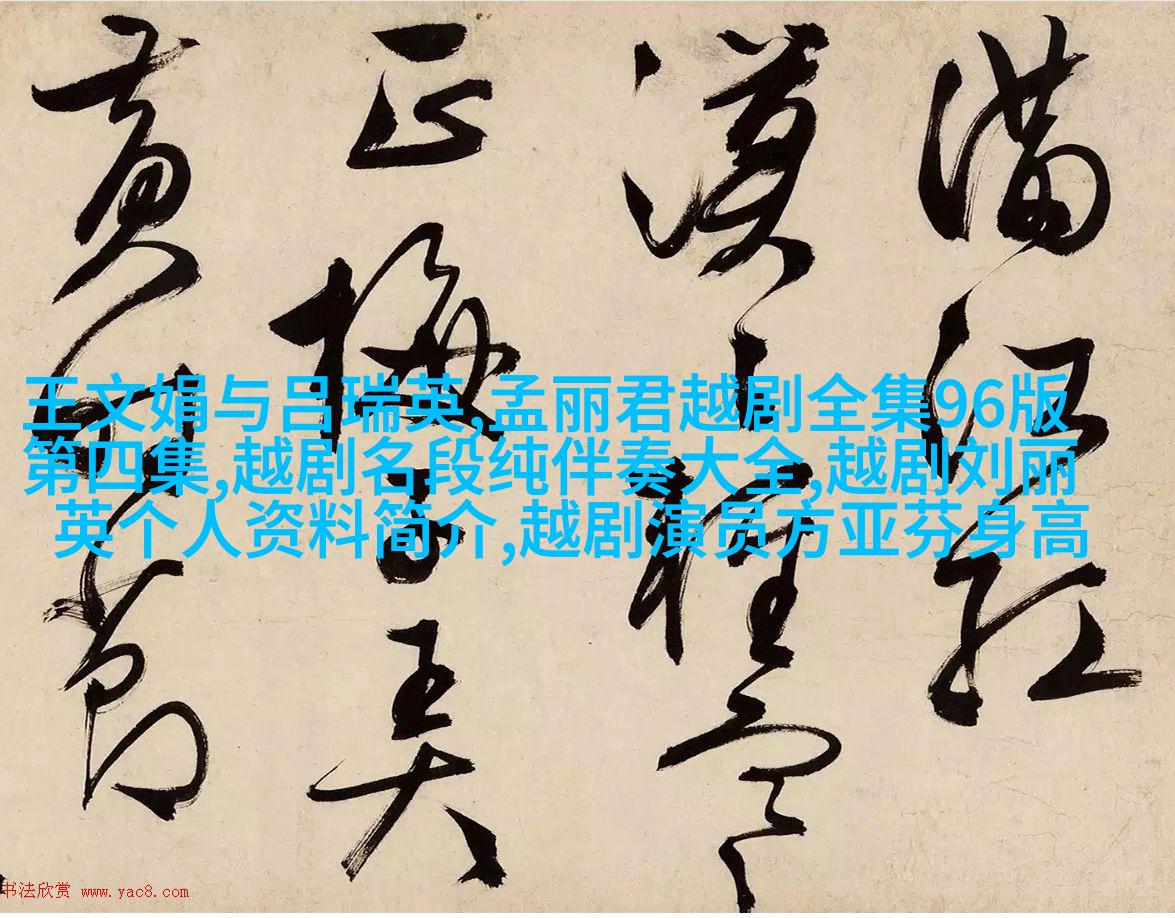 滿江紅
漠〻輕陰
正梅子弄
黃時節
王文娟与吕瑞英,孟丽君越剧全集96版
第四集,越剧名段纯伴奏大全,越剧刘丽
英个人资料简介,越剧演员方亚芬身高
书法欣赏 www.yac8.com